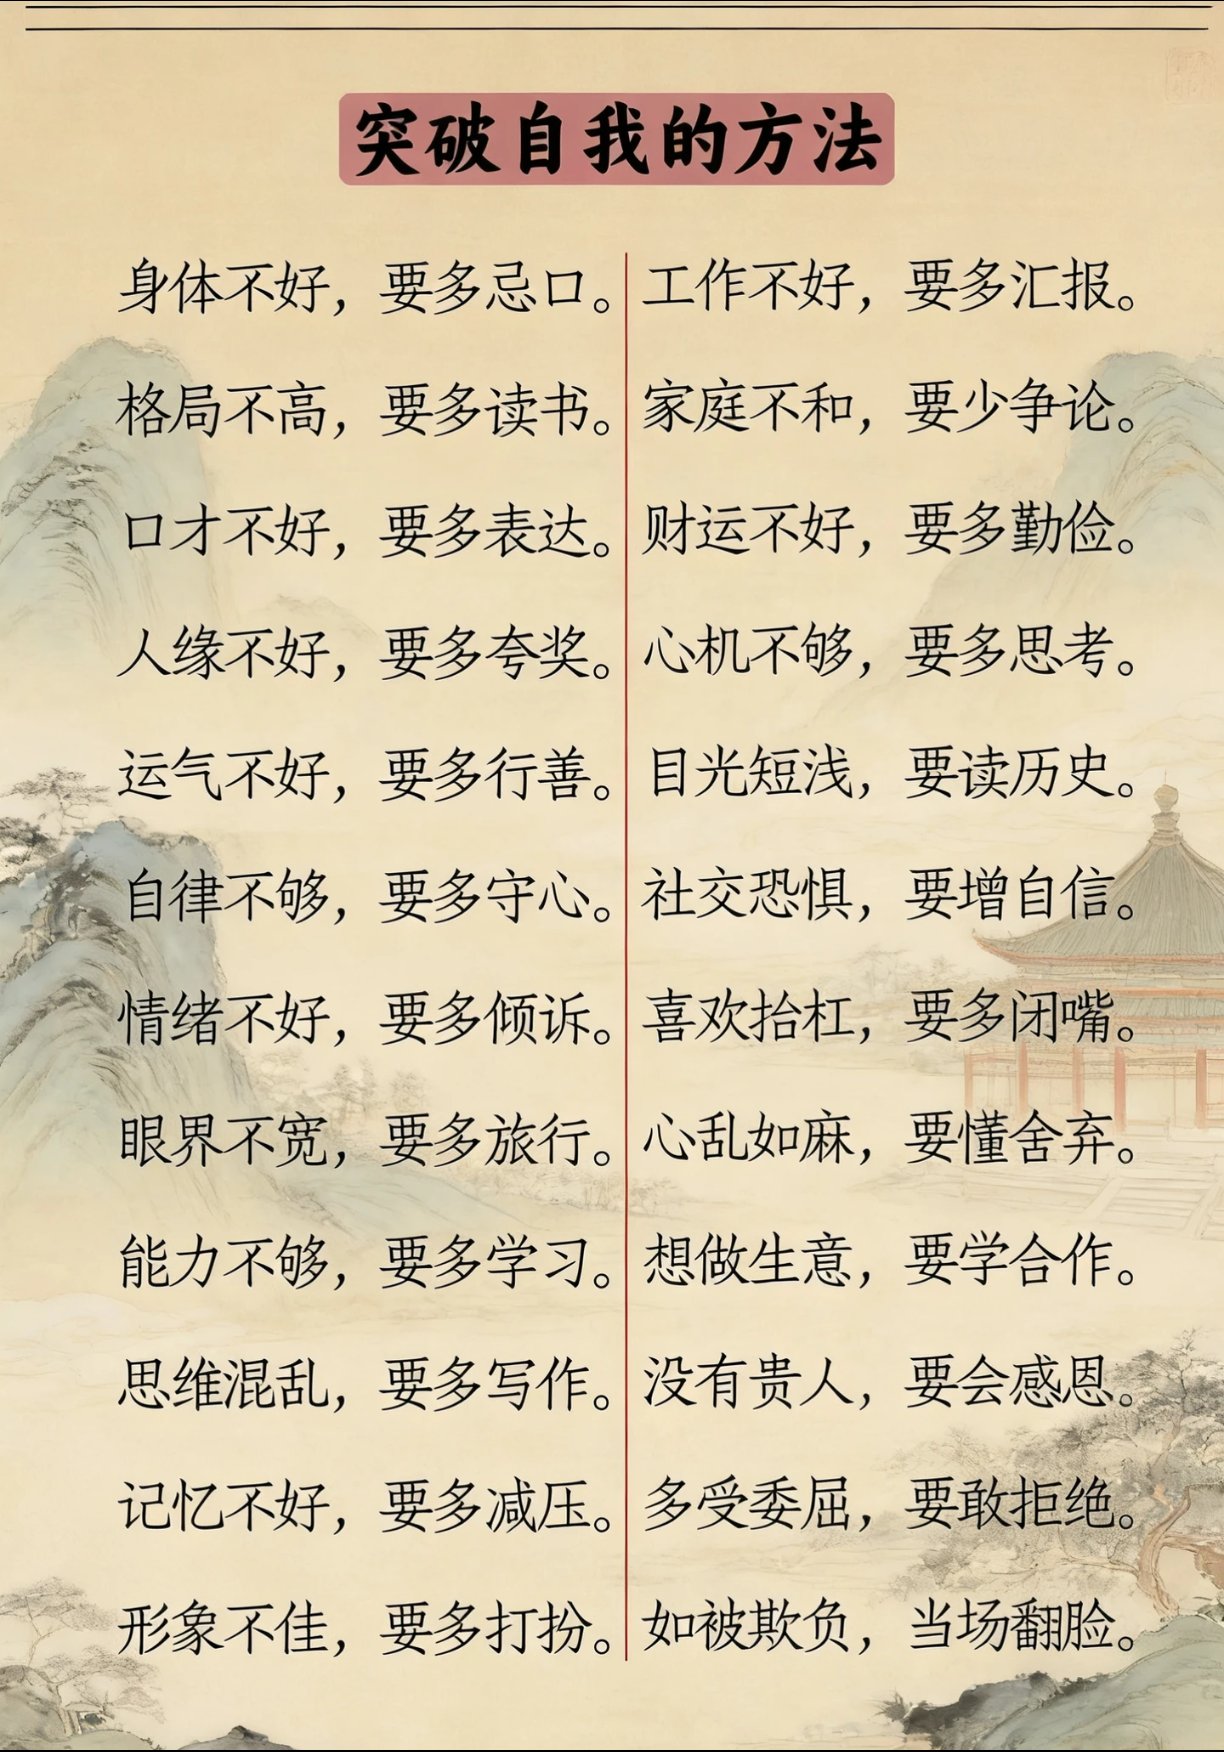 突破自我的方法
身体不好，要多忌口。
格局不高，要多读书。
口才不好，要多表达。
人缘不好，要多夸奖。
运气不好，要多行善。
自律不够，要多守心。
情绪不好，要多倾诉。
眼界不宽，要多旅行。
能力不够，要多学习。
思维混乱，要多写作。
记忆不好，要多减压。
形象不佳，要多打扮。
工作不好，要多汇报。
家庭不和，要少争论。
财运不好，要多勤俭。
心机不够，要多思考。
目光短浅，要读历史。
社交恐惧，要增自信。
喜欢抬杠，要多闭嘴。
心乱如麻，要懂舍弃。
想做生意，要学合作。
没有贵人，要会感恩。
多受委屈，要敢拒绝。
如被欺负，当场翻脸。